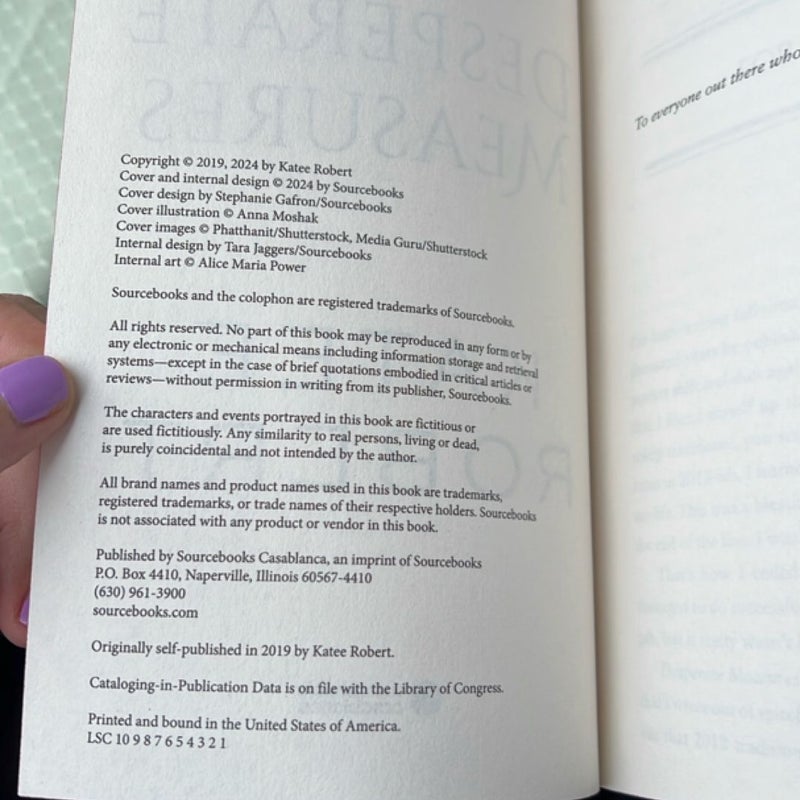 Copyright © 2019, 2024 by Katee Robert
Cover and internal design © 2024 by Sourcebooks
Cover design by Stephanie Gafron/Sourcebooks
Cover illustration © Anna Moshak
Cover images © Phatthanit/Shutterstock, Media Guru/Shutterstock
Internal design by Tara Jaggers/Sourcebooks
Internal art © Alice Maria Power
Sourcebooks and the colophon are registered trademarks of Sourcebooks.
All rights reserved. No part of this book may be reproduced in any form or by
any electronic or mechanical means including information storage and retrieval
systems—except in the case of brief quotations embodied in critical articles or
reviews—without permission in writing from its publisher, Sourcebooks.
The characters and events portrayed in this book are fictitious or
are used fictitiously. Any similarity to real persons, living or dead,
is purely coincidental and not intended by the author.
All brand names and product names used in this book are trademarks,
registered trademarks, or trade names of their respective holders. Sourcebooks
is not associated with any product or vendor in this book.
Published by Sourcebooks Casablanca, an imprint of Sourcebooks
P.O. Box 4410, Naperville, Illinois 60567-4410
(630) 961-3900
sourcebooks.com
Originally self-published in 2019 by Katee Robert.
Cataloging-in-Publication Data is on file with the Library of Congress.
Printed and bound in the United States of America.
LSC 10 9 8 7 6 5 4 3 2 1
To everyone out there who
DESPERATE
MEASURES